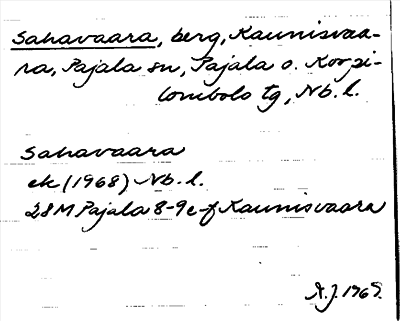 Sahavaara, berg, Kaunisvaa-
ra, Pajala sn, Pajala o. Korpi-
lombolo tg, Nb. l.
Sahavaara
ek (1968) Nb. l.
28M Pajala 8-9 e-f Kaunisvaara
A.J. 1969.